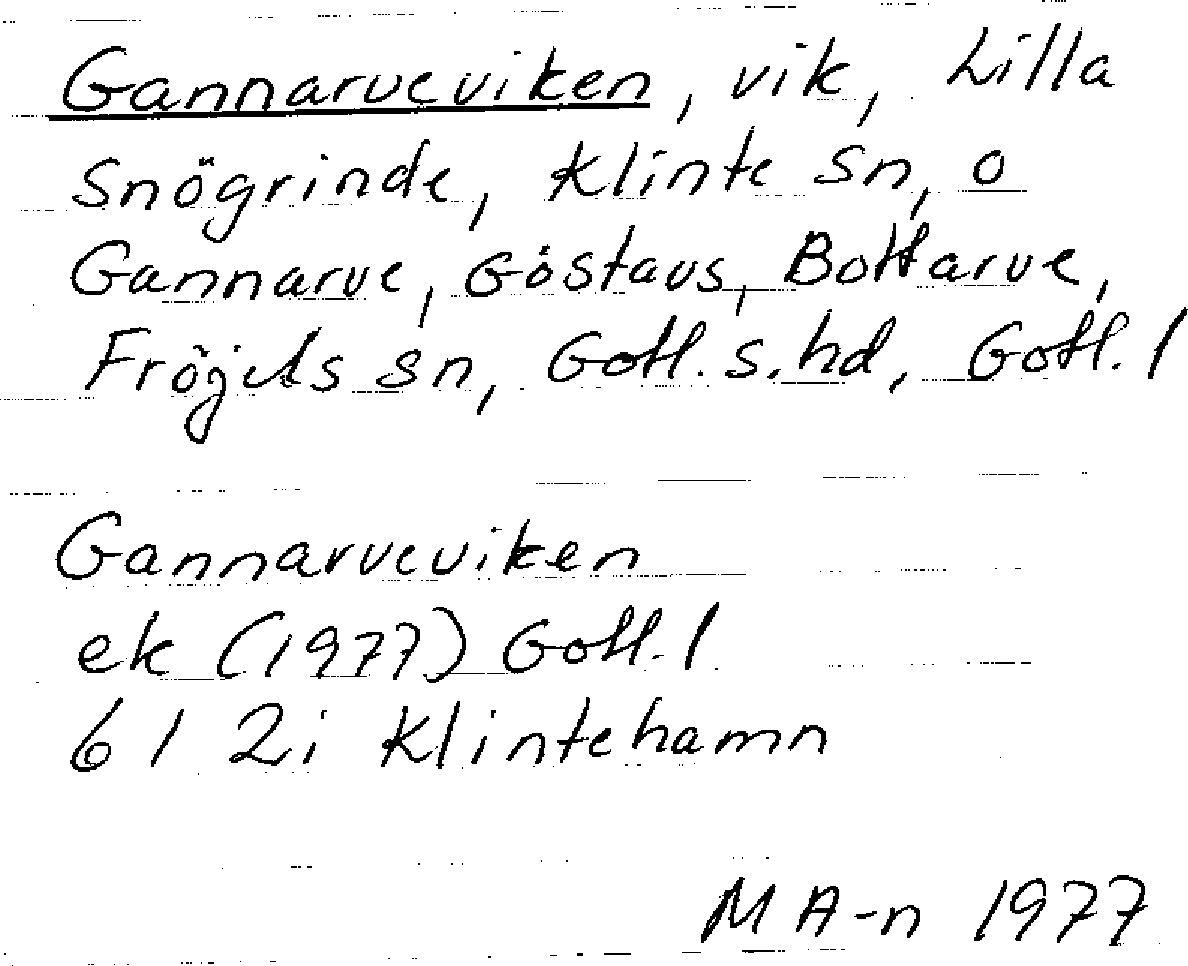 Gannarveviken, vik, Lilla
Snögrinde, Klinte sn, o
Gannarve, Göstavs, Bottarve,
Fröjels sn, Gotl. s. hd, Gotl. l
Gannarveviken
ek (1977) Gotl. l
6 I 2i Klintehamn
M A-n 1977